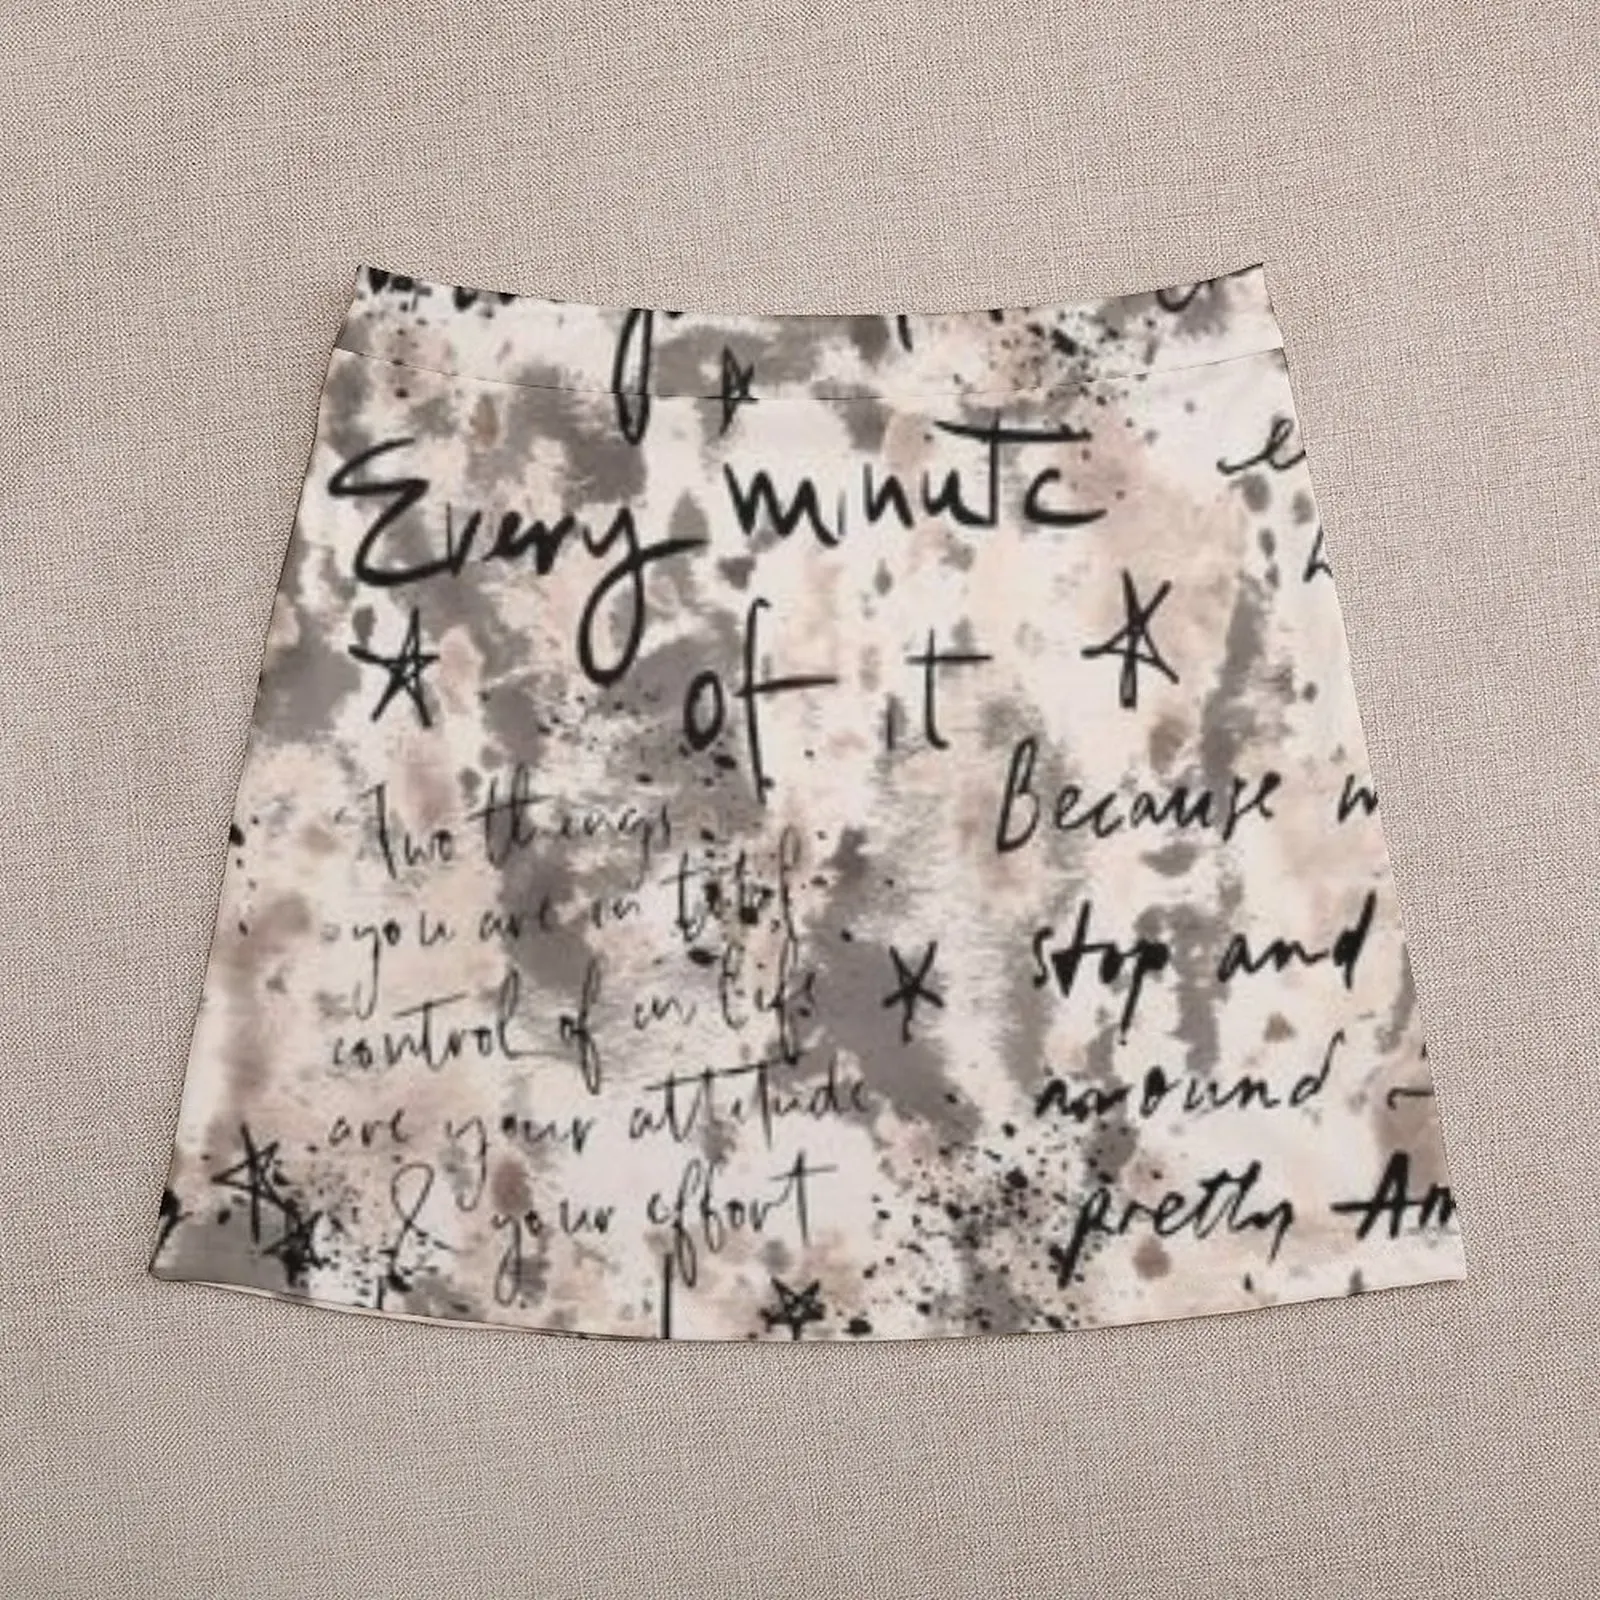 Every minute
of it
Two things
you are in total
control of in life
are your attitude
& your effort
Because
stop and
around
pretty Am